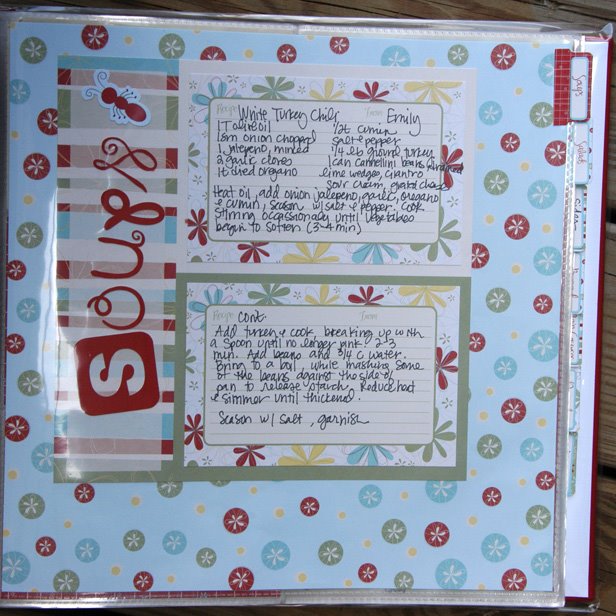 soups
Recipe: White Turkey Chili From: Emily
1 T olive oil 1/2t cumin
1 sm onion chopped salt & pepper
1 jalepeno, minced 1/4 lb ground turkey
2 garlic cloves 1 can cannellini beans drained
1t dried oregano lime wedges, cilantro
sour cream, grated cheese
Heat oil, add onion jalepeno, garlic, oregano
& cumin, season w/ salt & pepper. Cook
stirring occassionally until vegetables
begin to soften (3-4 min)
Recipe: cont. From:
Add turkey & cook, breaking up with
a spoon until no longer pink 2-3
min. Add beans and 3/4 c water.
Bring to a boil, while mashing some
of the beans against the side of
pan to release starch. Reduce heat
& simmer until thickened.
Season w/ salt, garnish
Soups
Salad
Sides